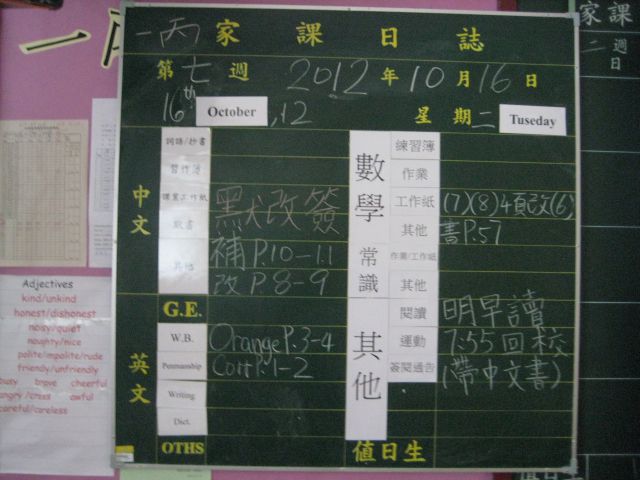 一丙
一丙家課日誌
第七週 2012年10月16日
16th October, 12 星期二 Tuseday
中文
詞語/抄書
習作簿
課業工作紙
默書 默改簽
其他 補P.10-11
改P.8-9
英文
G.E.
W.B. Orange P.3-4
Penmanship Corr P.1-2
Writing
Dict.
OTHS
數學
練習簿
作業
工作紙 (7)(8)4頁改(6)
其他 書P.57
常識
作業/工作紙
其他
其他
閱讀 明早讀
運動 7:55回校
簽閱通告 (帶中文書)
值日生
Adjectives
kind/unkind
honest/dishonest
noisy/quiet
naughty/nice
polite/impolite/rude
friendly/unfriendly
busy brave cheerful
angry/cross awful
careful/careless
家課
二週
日
值日生